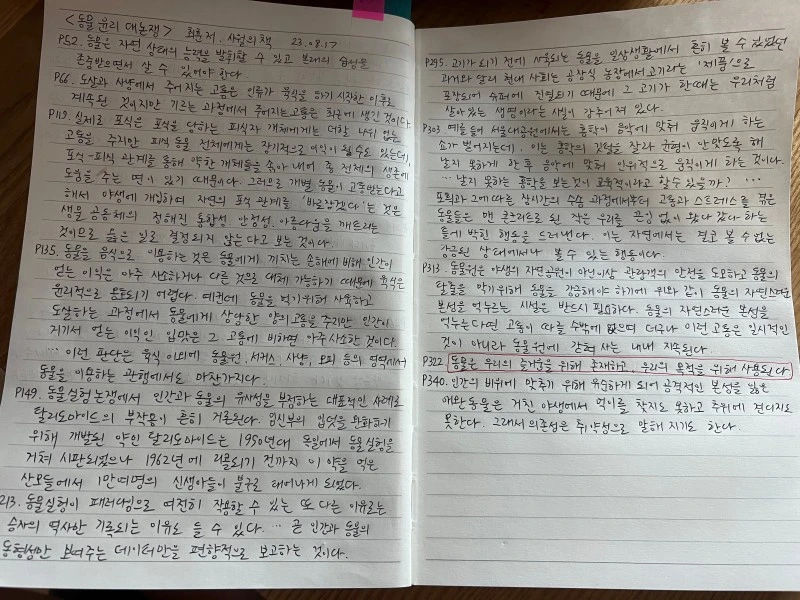 <동물 윤리 대논쟁> 최훈 저. 사월의책 23.08.17
P52. 동물은 자연 상태의 능력을 발휘할 수 있고 본래의 습성을
존중받으면서 살 수 있어야 한다.
P66. 도살과 사냥에서 주어지는 고통은 인류가 육식을 하기 시작한 이후로
계속된 것이지만 기르는 과정에서 주어지는 고통은 최근에 생긴 것이다.
P119. 실제로 포식은 포식을 당하는 피식자 개체에게는 더할 나위 없는
고통을 주지만 피식 동물 전체에게는 장기적으로 이익이 될 수도 있는데,
포식-피식 관계를 통해 약한 개체들을 솎아 내어 종 전체의 생존에
도움을 주는 면이 있기 때문이다. 그러므로 개별 동물이 고통받는다고
해서 야생에 개입하여 자연의 포식 관계를 '바로잡겠다'는 것은
생물 공동체의 전체의 통합성 안정성. 아름다움을 깨뜨리는
것이므로 옳은 일로 결정되지 않는다고 보는 것이다.
P135. 동물을 음식으로 이용하는 것은 동물에게 끼치는 손해에 비해 인간이
얻는 이익은 아주 사소하거나 다른 것으로 대체 가능하기 때문에 육식은
윤리적으로 옹호되기 어렵다. 예컨대 동물을 먹기위해 사육하고
도살하는 과정에서 동물에게 상당한 양의 고통을 주지만 인간이
거기서 얻는 이익인 입맛은 그 고통에 비하면 아주 사소한 것이다.
… 이런 판단은 육식 이외에 동물원, 서커스, 사냥, 모피 등의 영역에서
동물을 이용하는 관행에서도 마찬가지다.
P149. 동물실험 논쟁에서 인간과 동물의 유사성을 부정하는 대표적인 사례로
탈리도마이드의 부작용이 흔히 거론된다. 임신부의 입덧을 완화하기
위해 개발된 약인 탈리도마이드는 1950년대 독일에서 동물실험을
거쳐 시판되었으나 1962년에 리콜되기 전까지 이 약을 먹은
산모들에서 1만여명의 신생아들이 불구로 태어나게 되었다.
213. 동물실험이 패러다임으로 여전히 작용할 수 있는 또 다른 이유로는
승자의 역사만 기록되는 이유도 들 수 있다. … 곧 인간과 동물의
동형성만 보여주는 데이터만을 편향적으로 보고하는 것이다.
P295. 고기가 되기 전에 사육되는 동물을 일상생활에서 흔히 볼 수 있었던
과거와 달리 현대 사회는 공장식 농장에서 고기라는 '제품'으로
포장되어 슈퍼에 진열되기 때문에 그 고기가 한때는 우리처럼
살아 있는 생명이라는 사실이 감추어져 있다.
P303 예를 들어 서울대공원에서는 홍학이 음악에 맞춰 움직이게 하는
쇼가 벌어지는데. 이는 홍학의 깃털을 잘라 균형이 안맞도록 해
날지 못하게 한 후 음악에 맞춰 인위적으로 움직이게 하는 것이다.
… 날지 못하는 홍학을 보는것이 교육적이라고 할 수 있을까? …
포획과 그에 따르는 장시간의 수송 과정에서부터 고통과 스트레스를 겪은
동물들은 맨 콘크리트로 된 작은 우리를 끊임 없이 왔다 갔다 하는
틀에 박힌 행동을 드러낸다. 이는 자연에서는 결코 볼 수 없는
감금된 상태에서나 볼 수 있는 행동이다.
P313. 동물원은 야생의 자연공원이 아닌이상 관람객의 안전을 도모하고 동물의
탈출을 막기위해 동물을 감금해야 하기에 위와 같이 동물의 자연스러운
본성을 억누르는 시설은 반드시 필요하다. 동물의 자연스러운 본성을
억누른다면 고통이 따를 수밖에 없으며 더구나 이런 고통은 일시적인
것이 아니라 동물원에 갇혀 사는 내내 지속된다.
P322. 동물은 우리의 즐거움을 위해 존재하고, 우리의 목적을 위해 사용된다.
P340. 인간의 비위에 맞추기 위해 유순하게 되어 공격적인 본성을 잃은
애완동물은 거친 야생에서 먹이를 찾지도 못하고 추위에 견디지도
못한다. 그래서 의존성은 취약성으로 말해 지기도 한다.